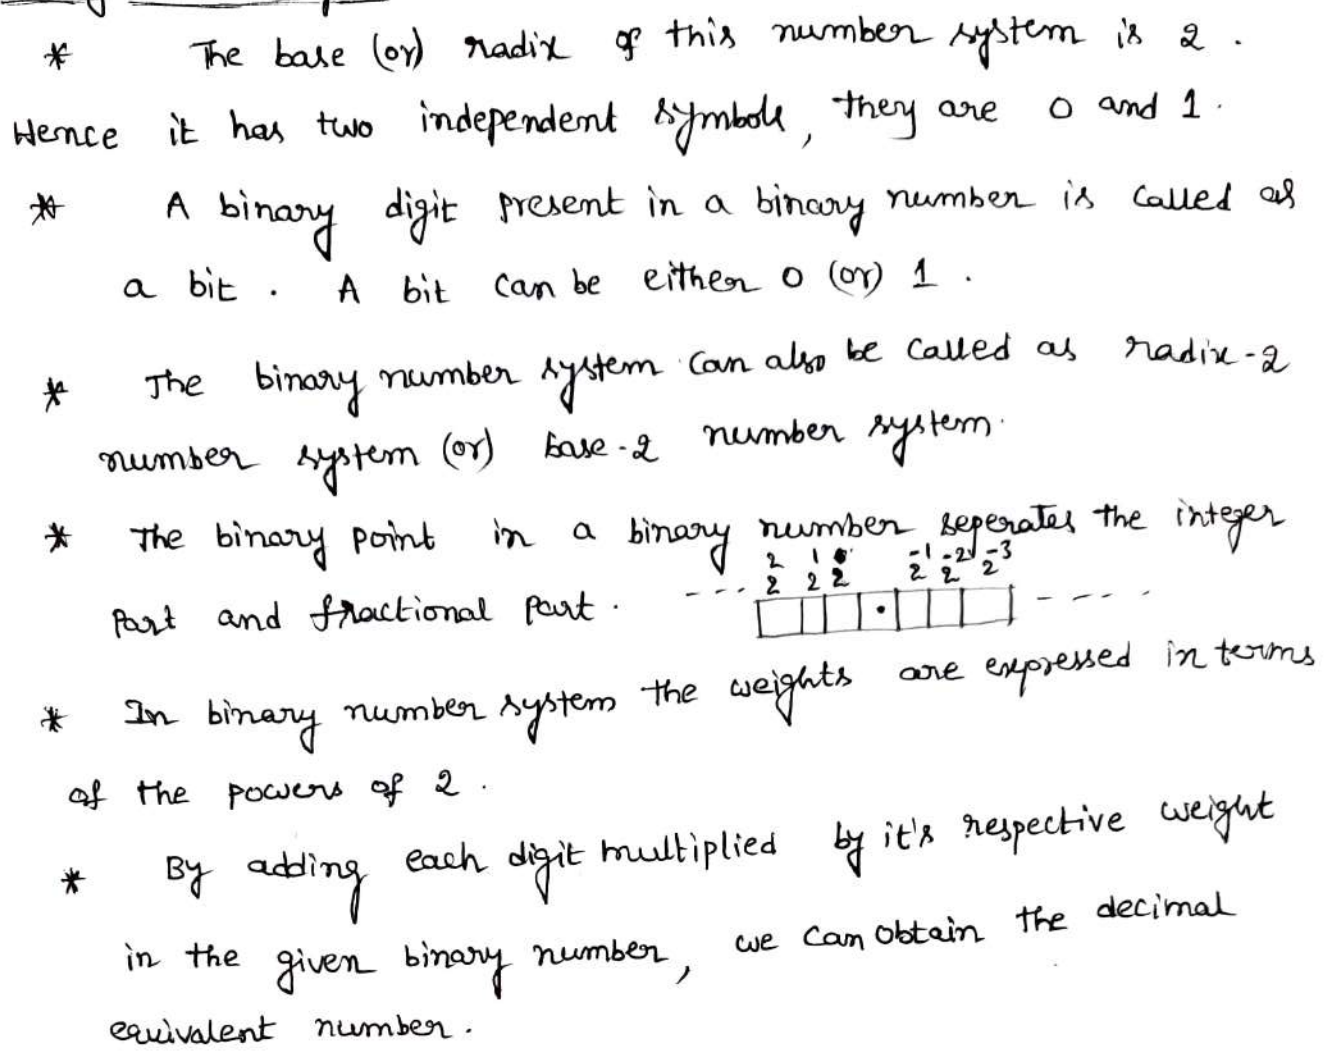 * The base (or) radix of this number system is 2 .
Hence it has two independent symbols, they are 0 and 1 .
* A binary digit present in a binary number is called as
a bit . A bit can be either 0 (or) 1 .
* The binary number system can also be called as radix-2
number system (or) base-2 number system.
* The binary point in a binary number seperates the integer
2² 2¹ 2⁰ 2⁻¹ 2⁻² 2⁻³
part and fractional part . --- . ----
* In binary number system the weights are expressed in terms
of the powers of 2 .
* By adding each digit multiplied by it's respective weight
in the given binary number, we can obtain the decimal
equivalent number .